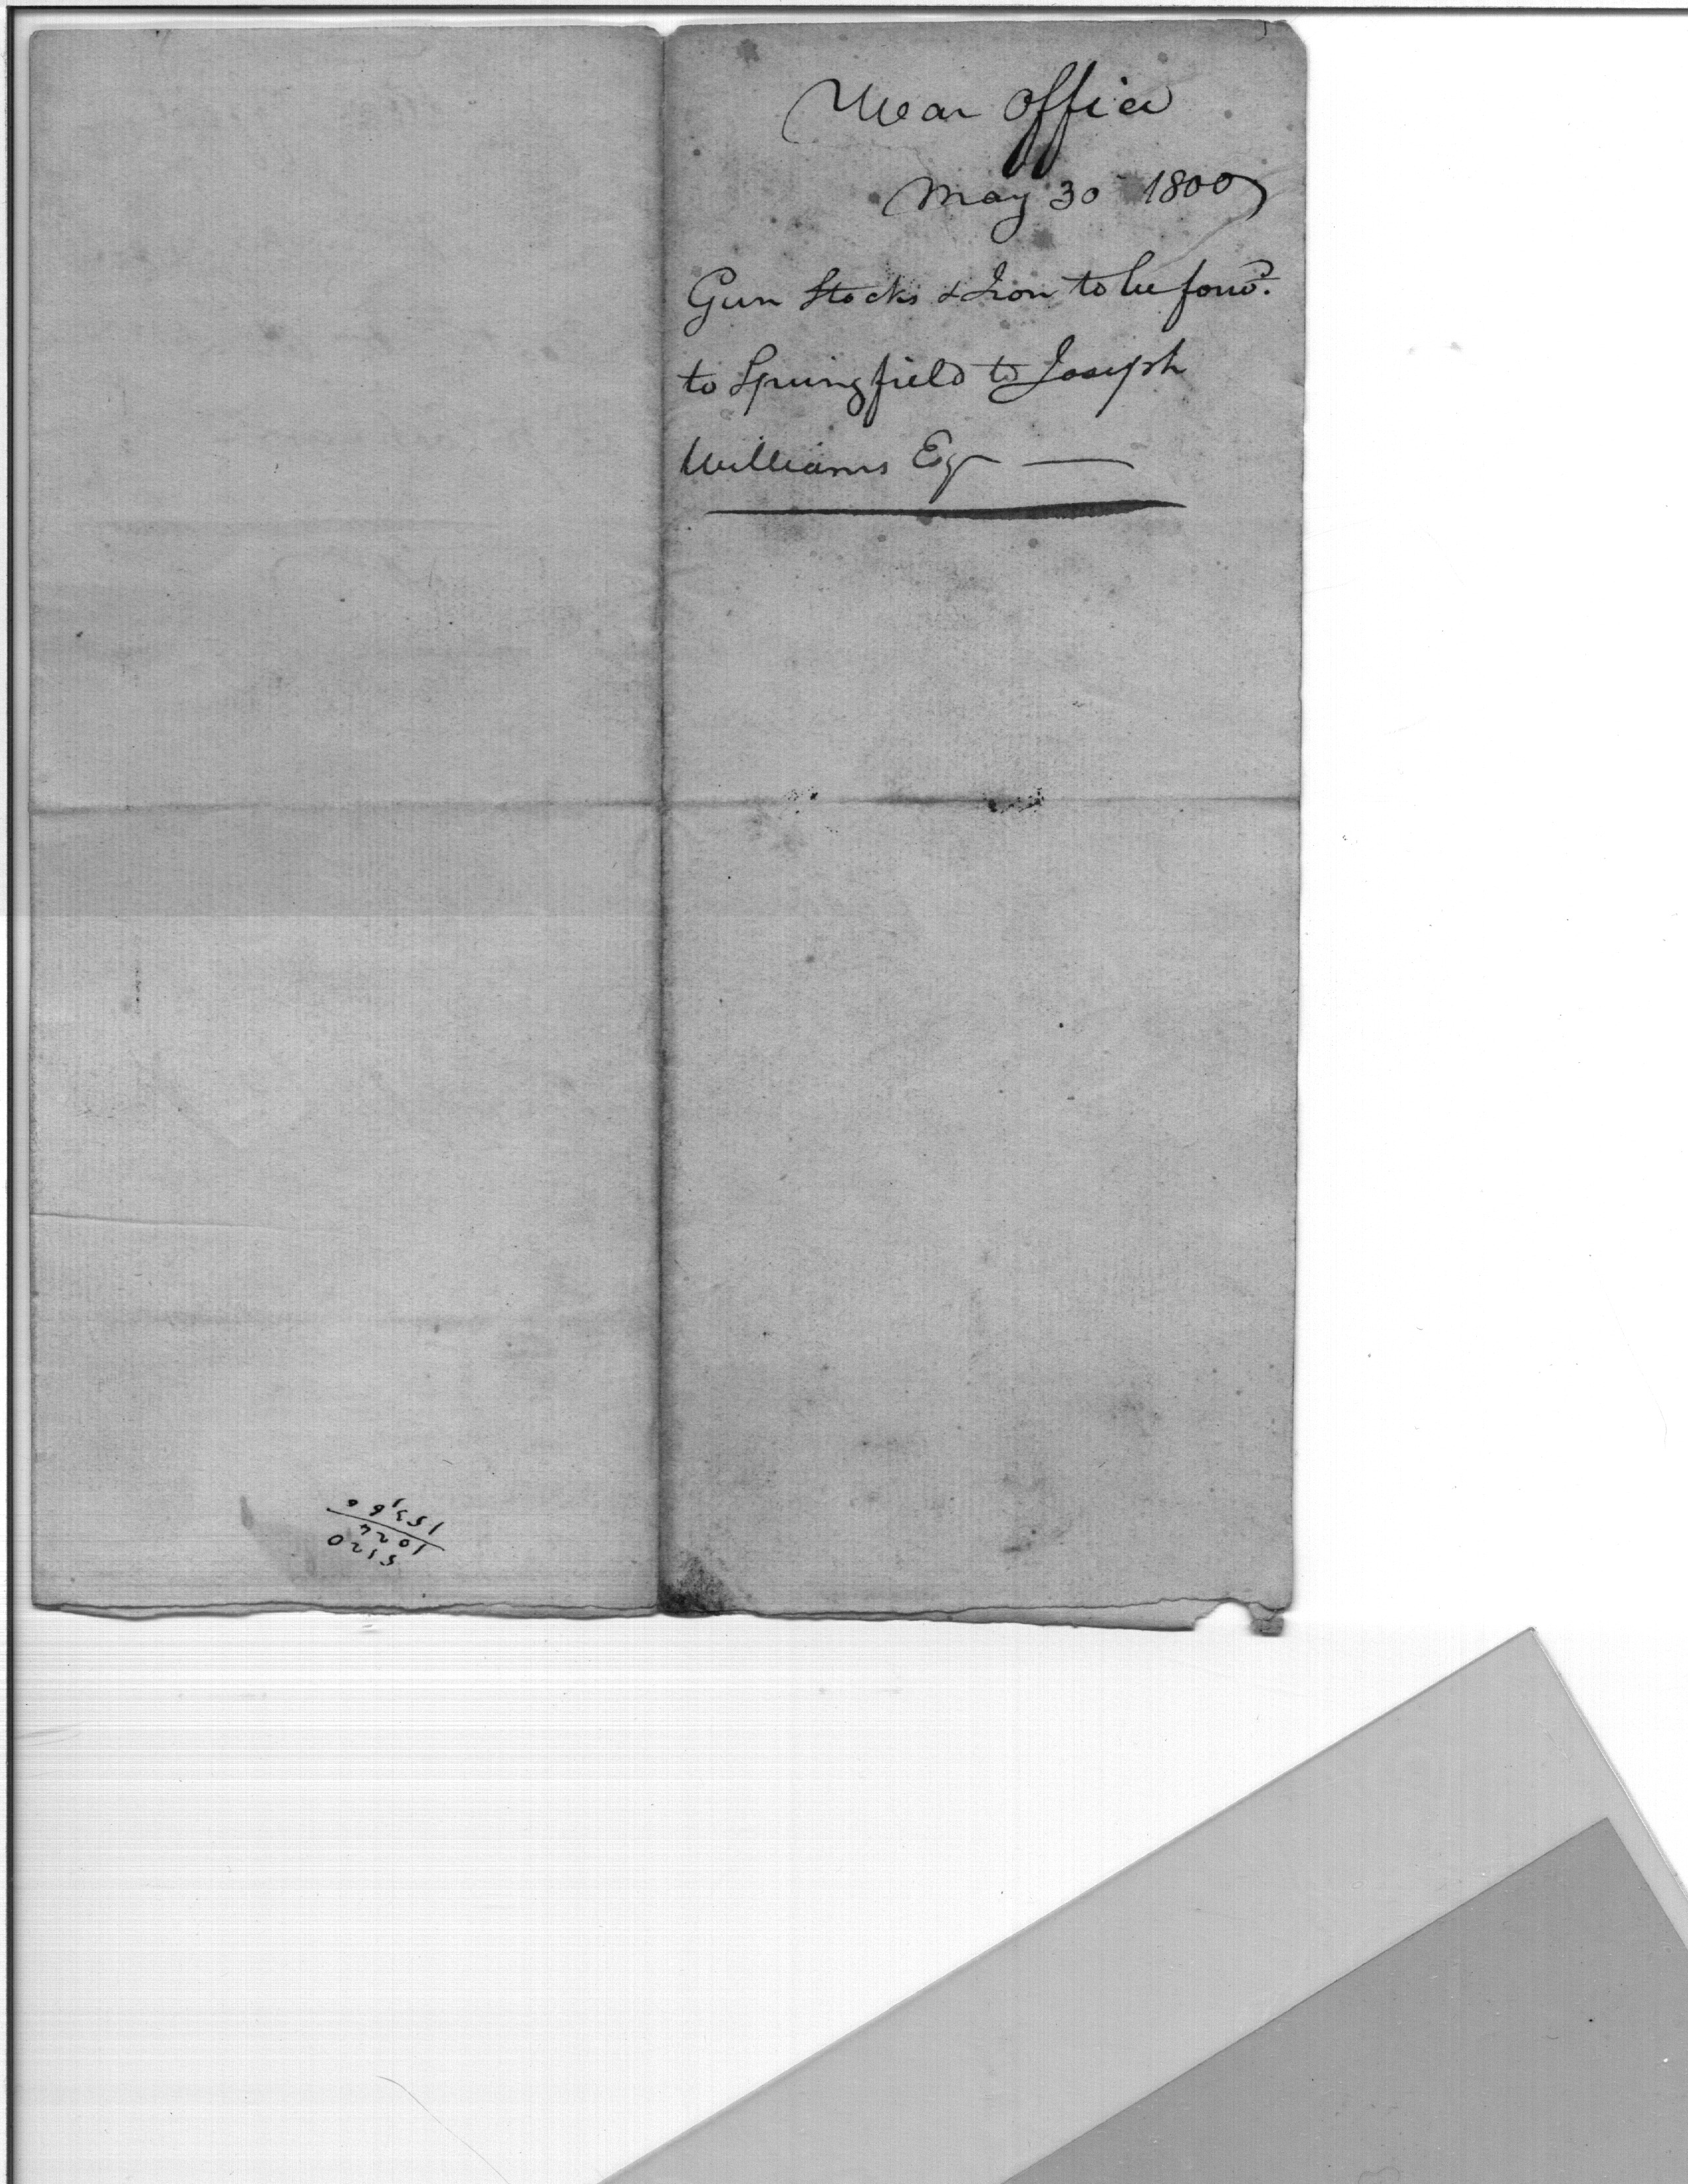 War Office
May 30 1800
Gun Stocks & Iron to be forwd.
to Springfield to Joseph
Williams Esq —
5120
1024
153,60